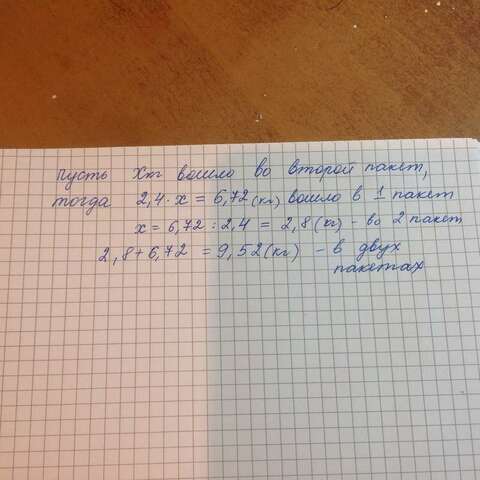 пусть Хкг вошло во второй пакет,
тогда 2,4 · х = 6,72 (кг) вошло в 1 пакет
х = 6,72 : 2,4 = 2,8 (кг) - во 2 пакет
2,8 + 6,72 = 9,52 (кг) - в двух
пакетах